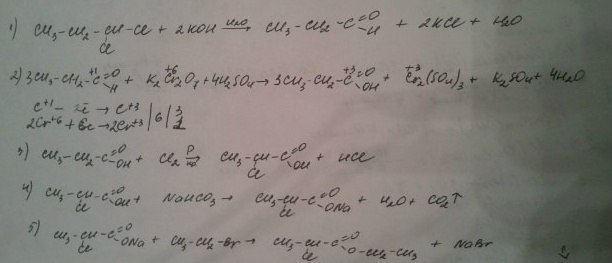 1) CH3-CH2-CH-Cl + 2KOH H2O→ CH3-CH2-C=O-H + 2KCl + H2O
Cl
2) 3CH3-CH2-C+1=O-H + K2Cr+62O7 + 4H2SO4 → 3CH3-CH2-C+3=O-OH + Cr+32(SO4)3 + K2SO4 + 4H2O
C+1 - 2e → C+3 | | 3
2Cr+6 + 6e → 2Cr+3 | 6 | 1
3) CH3-CH2-C=O-OH + Cl2 P→ CH3-CH-C=O-OH + HCl
Cl
4) CH3-CH-C=O-OH + NaHCO3 → CH3-CH-C=O-ONa + H2O + CO2↑
Cl Cl
5) CH3-CH-C=O-ONa + CH3-CH2-Br → CH3-CH-C=O-O-CH2-CH3 + NaBr
Cl Cl